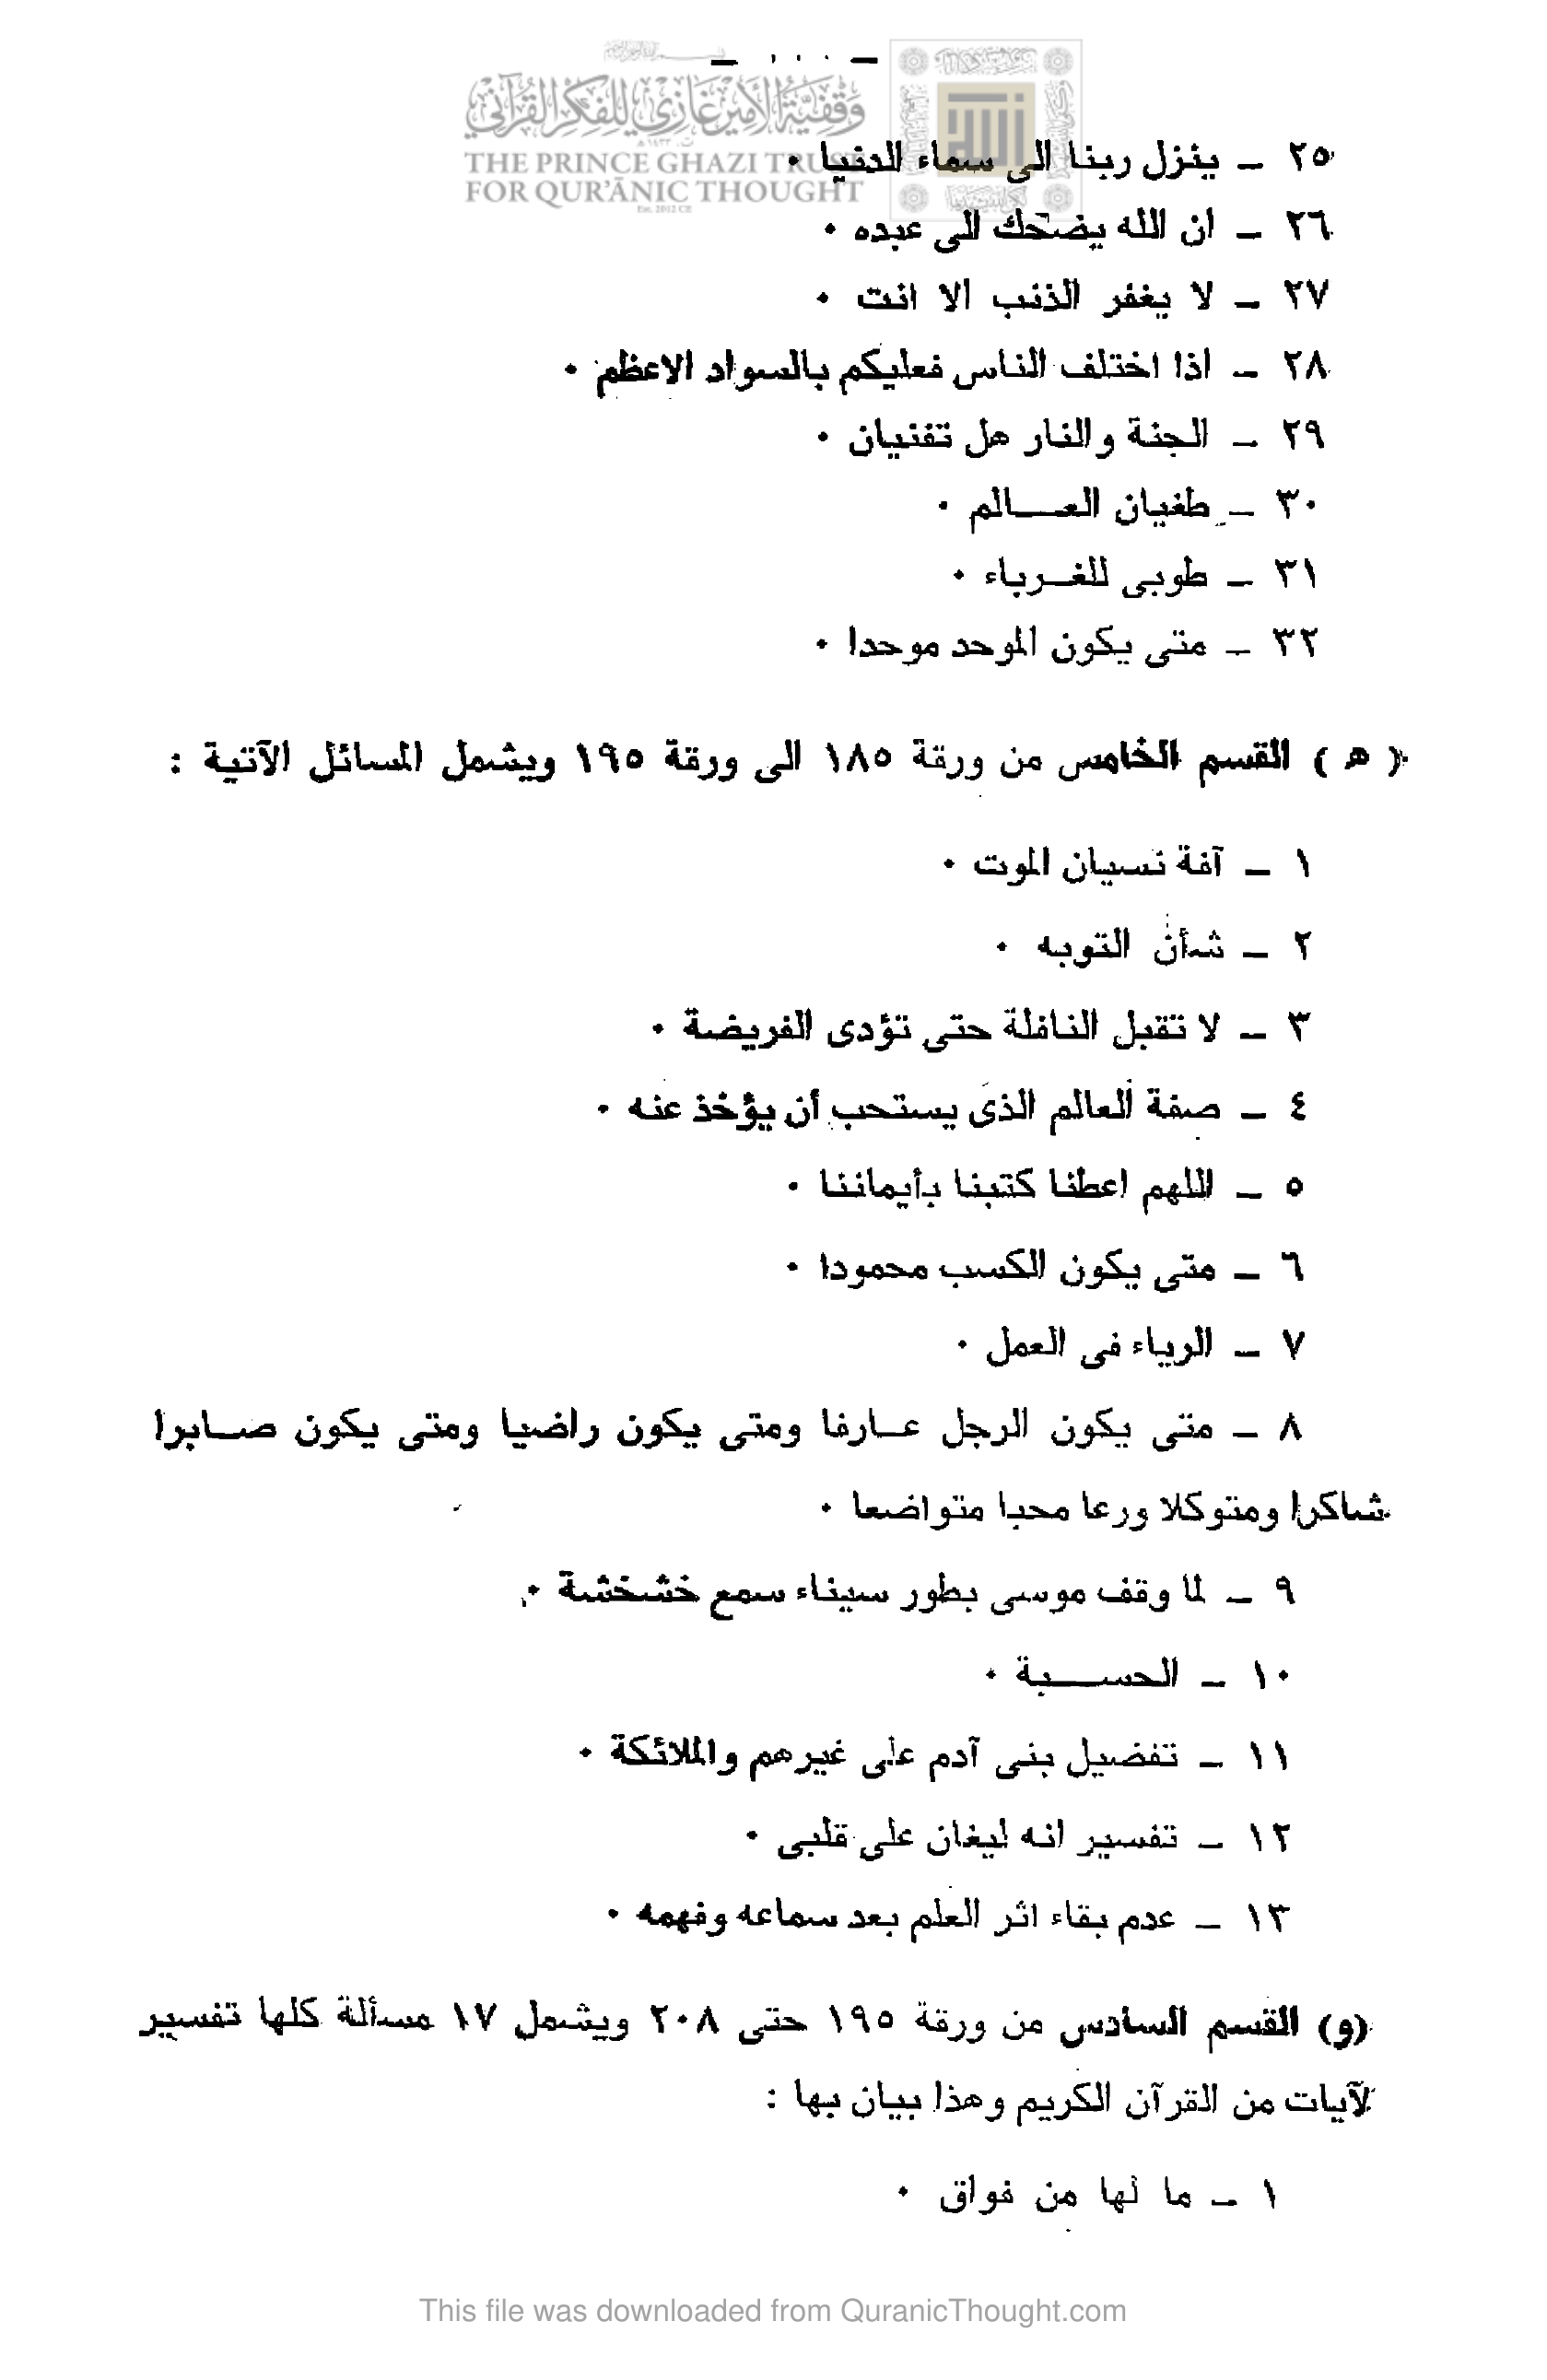 وقفية الأمير غازي للفكر القرآني
THE PRINCE GHAZI TRUST
FOR QUR'ĀNIC THOUGHT
Est. 2012 CE
٢٥ – ينزل ربنا الى سماء الدنيا ٠
٢٦ – ان الله يضحك الى عبده ٠
٢٧ – لا يغفر الذنب الا انت ٠
٢٨ – اذا اختلف الناس فعليكم بالسواد الاعظم ٠
٢٩ – الجنة والنار هل تفنيان ٠
٣٠ – طغيان العـــالم ٠
٣١ – طوبى للغــرباء ٠
٣٢ – متى يكون الموحد موحدا ٠
( ه ) القسم الخامس من ورقة ١٨٥ الى ورقة ١٩٥ ويشمل المسائل الآتية :
١ – آفة نسيان الموت ٠
٢ – شأن التوبه ٠
٣ – لا تقبل النافلة حتى تؤدى الفريضة ٠
٤ – صفة العالم الذى يستحب أن يؤخذ عنه ٠
٥ – اللهم اعطنا كتبنا بأيماننا ٠
٦ – متى يكون الكسب محمودا ٠
٧ – الرياء فى العمل ٠
٨ – متى يكون الرجل عــارفا ومتى يكون راضيا ومتى يكون صــابرا
شاكرا ومتوكلا ورعا محبا متواضعا ٠
٩ – لما وقف موسى بطور سيناء سمع خشخشة ٠
١٠ – الحســـبة ٠
١١ – تفضيل بنى آدم على غيرهم والملائكة ٠
١٢ – تفسير انه ليغان على قلبى ٠
١٣ – عدم بقاء اثر العلم بعد سماعه وفهمه ٠
(و) القسم السادس من ورقة ١٩٥ حتى ٢٠٨ ويشمل ١٧ مسألة كلها تفسير
لآيات من القرآن الكريم وهذا بيان بها :
١ – ما لها من فواق ٠
This file was downloaded from QuranicThought.com